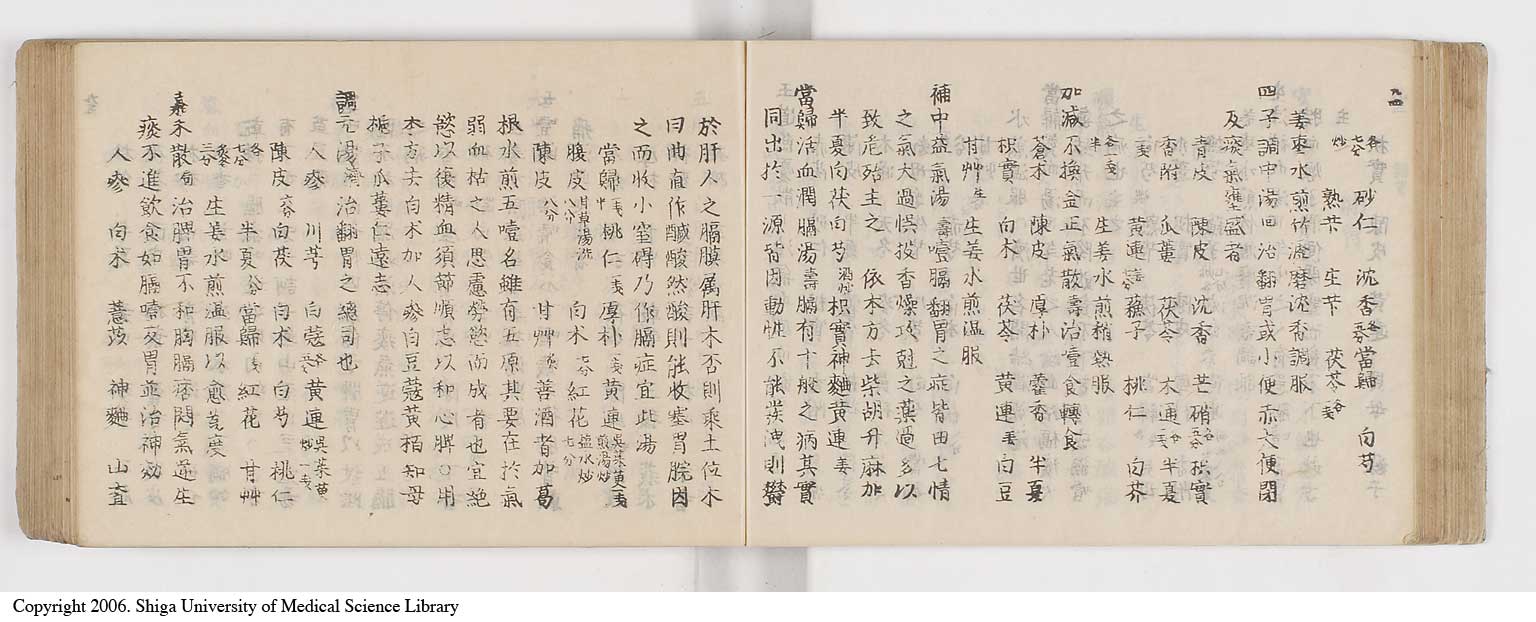 九四
各七分 砂仁 沈香 各五分 當歸 白芍
炒 熟芐 生芐 茯苓 各一戔
姜棗水煎竹瀝磨沈香調服
四子調中湯 回 治翻胃或小便赤大便閉
及痰氣壅盛者
青皮 陳皮 沈香 芒硝 各五分 枳實
香附 瓜蔞 茯苓 木通 半夏
黄連 蘓子 桃仁 白芥
各一戔半 生姜水煎稍熱服
加減不換金正氣散 壽 治噎食轉食
蒼朮 陳皮 厚朴 藿香 半夏
枳實 白朮 茯苓 黄連 白豆
甘艸 生姜水煎温服
補中益氣湯 壽 噎膈翻胃之症皆由七情
之氣大過悞投香燥攻尅之藥過多以
致危殆主之 依本方去柴胡升麻加
半夏白茯白芍 酒炒 枳實神麯黄連姜
當歸活血潤膈湯 壽 膈有十般之病其實
同出於一源皆因動性不能發洩則鬱
於肝人之膈膜属肝木否則乘土位木
曰曲直作醎酸然酸則能收塞胃脘因
之而收小窒碍乃作膈症宜此湯
當歸 桃仁 厚朴 黄連 吳茱萸煎湯炒
腹皮 甘草湯洗 八分 白朮 紅花 塩水炒 七分
陳皮 八分 甘艸 善酒者加葛
根水煎五噎名雖有五原其要在於氣
弱血枯之人思慮勞慾而成者也宜絶
慾以復精血須節順志以和心脾○用
本方去白朮加人參白豆蔻黄栢知母
梔子瓜蔞仁遠志
調元湯 濟 治翻胃之總司也
人參 川芎 白蔻 黄連 吳茱萸炒一戔
陳皮 白茯 白朮 白芍 桃仁
各七分 半夏 當歸 紅花 甘艸
三分 生姜水煎温服以愈爲度
嘉禾散 局 治脾胃不和胸膈痞悶氣逆生
痰不進飲食如膈噎反胃並治神効
人參 白朮 薏苡 神麯 山查